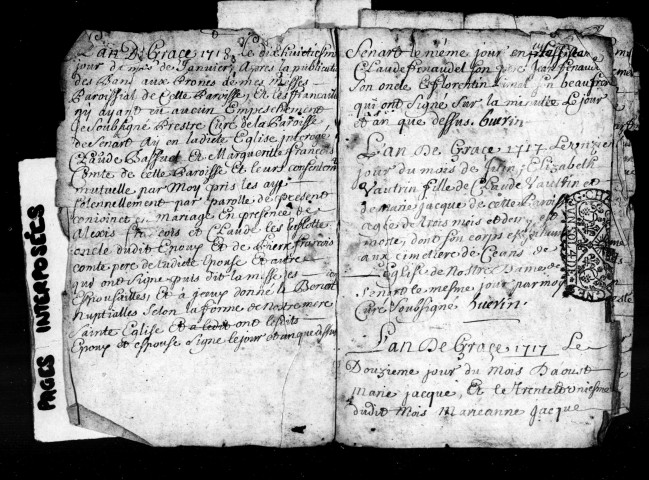 L'an De Grace 1718 le dixhuictiesme
jour du mois de Janvier Apres la publication
des Bans aux Prones de mes Messes
Paroissial de Cette Paroisse et les fiancailles
ny ayant eu aucun Empeschement
Je Soubsigné Prestre Curé de la Paroisse
de Senart Ay en ladicte Eglise interogé
Claude et Marguerite francois
Comte de cette Paroisse et leurs consentem
mutuelle par Moy pris les ay
solennellement par parolle de present
conioinct en mariage en presence de
Alexis francois et Claude
oncle dudit Epoux Et de Pierre francois
comte pere de ladicte Epouse et autre
qui ont Signé puis dit la messe des
Espousailles, et a donné la Benon
nuptialles Selon la forme de nostre mere
Sainte Eglise et ont lesdits
Epoux et espouse Signé le jour et an que dessus
Senart le méme jour en
Claude fenaudel son pere Jean fenaudel
Son oncle et florentin son beaufrere
qui ont Signé Sur la minutte Le jour
et an que dessus. Guerin
L'an De Grace 1717 Le onzieme
jour du mois de Juin Elizabeth
Vautrin fille de Claude Vautrin et
de marie jacque de cette Paroisse
agée de trois mois et demy est
morte, dont son corps est inhumé
aux cimetier de Ceans de
L'Eglise de Nostre Dame de
Senart le mesme jour par moy
Curé Soubsigné Guerin
L'an De Grace 1717 Le
Douzieme jour du Mois Daoust
Marie jacque, Et le trente et uniesme
dudit Mois Mareanne jacque
PAGES INTERPOSÉES